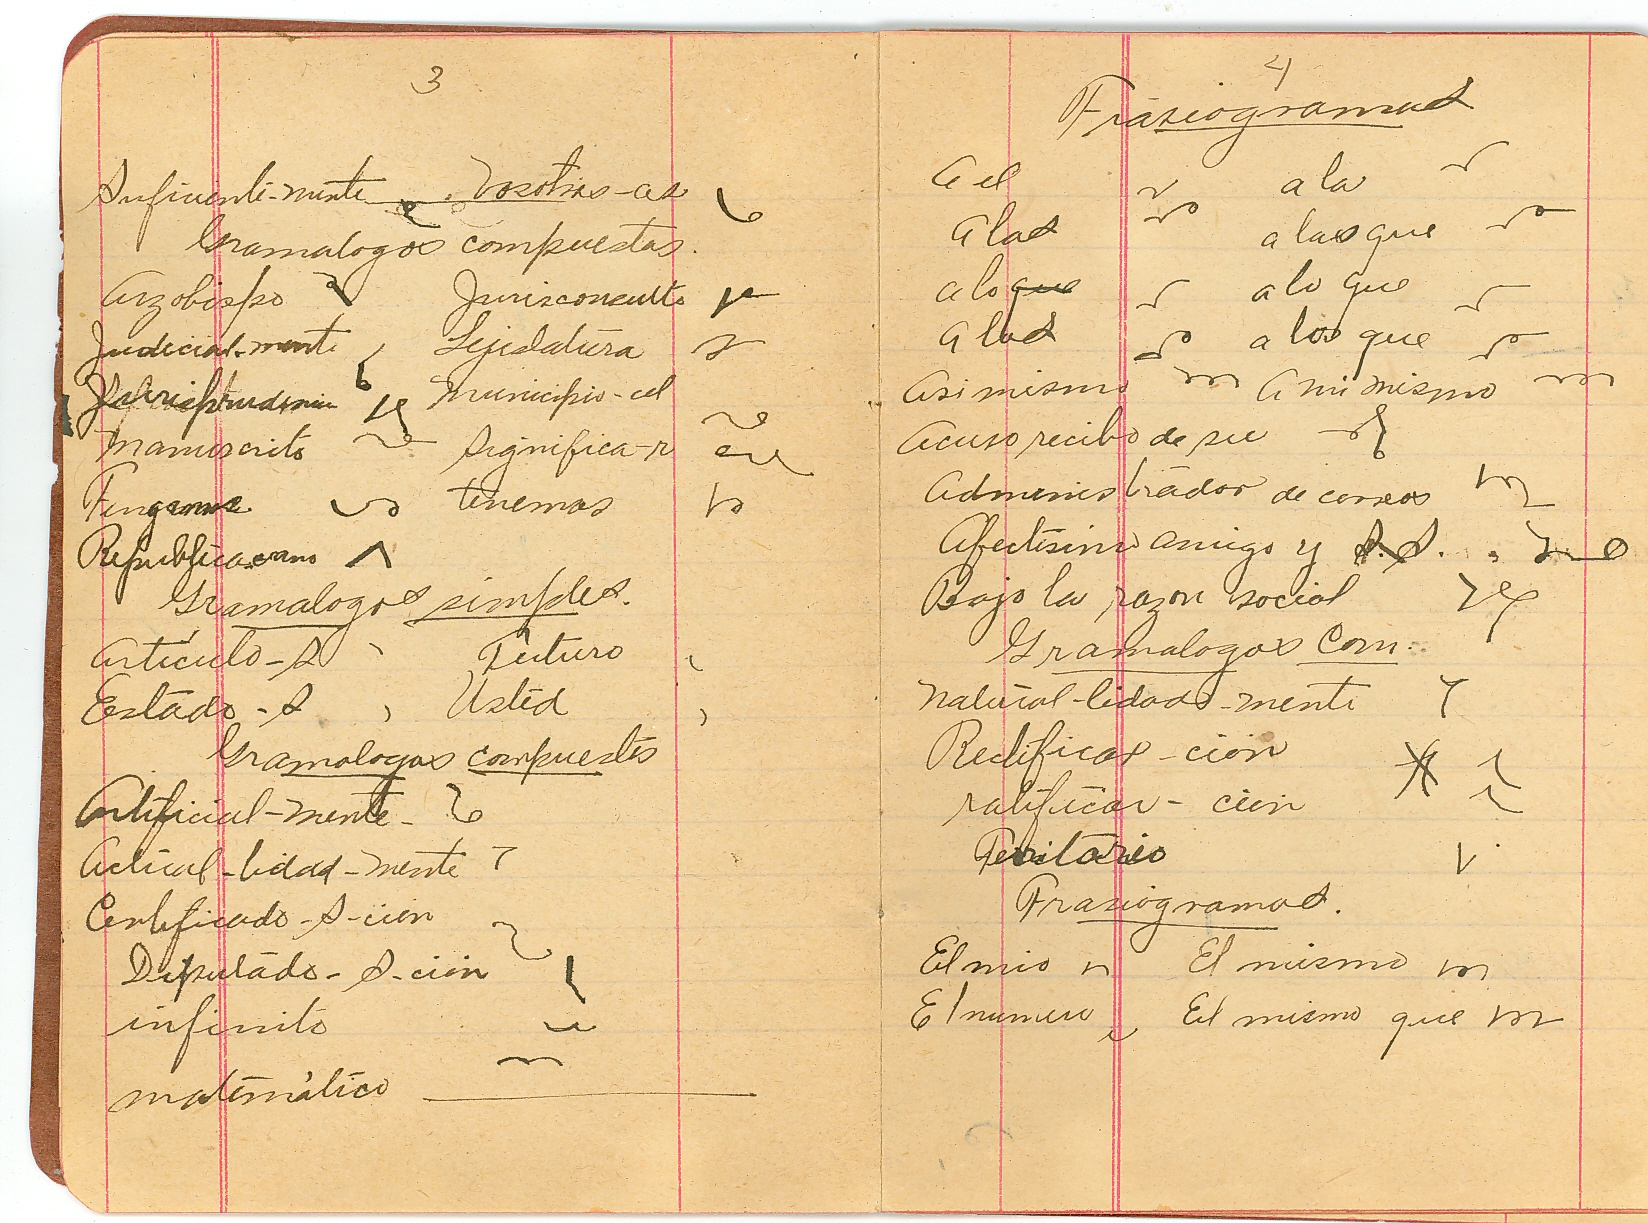 3
Suficiente-mente Vosotros-as
Gramalogos compuestos.
Arzobispo Jurisconsulto
Judicial-mente Lejislatura
Jurisprudencia Municipio-al
Manuscrito Significa-r
Tengamos tenemos
Republica-ano
Gramalogos simples.
Artículo-S Futuro
Estado-S Usted
Gramalogos compuestos
Artificial-mente-
Actual-lidad-mente
Certificado-S-cion
Diputado-S-ción
infinito
matemático
4
Frasiogramas
A el a la
A las a las que
a lo que a lo que
A los a los que
Asi mismo A mi mismo
Acuso recibo de su
Administrador de correos
Afectisimo amigo y S.S.
Bajo la razon social
Gramalogos Com.
Natural-lidad-mente
Rectificar-ción
ratificar-cion
Territorio
Frasiogramas.
El mio El mismo
El numero El mismo que